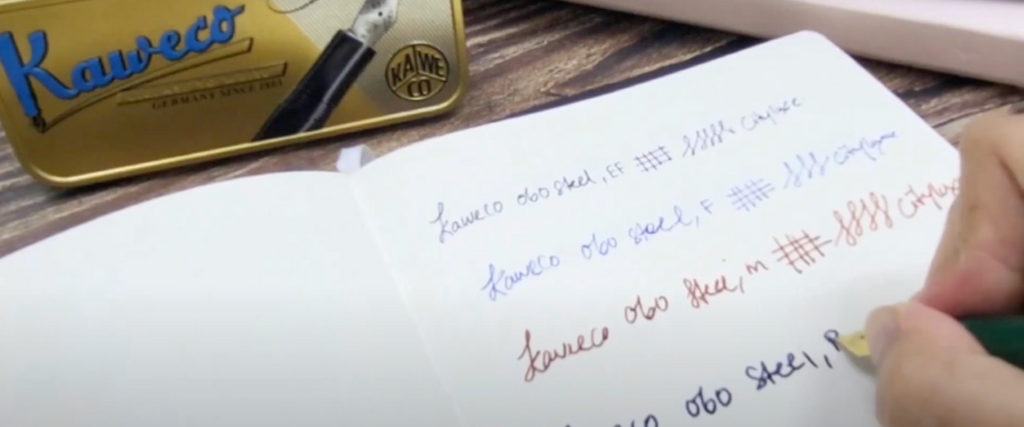 Kaweco
GERMANY SINCE 1883
KA WE CO
Kaweco 060 steel, EF cityluxe
Kaweco 060 steel, F cityluxe
Kaweco 060 steel, M cityluxe
060 steel,